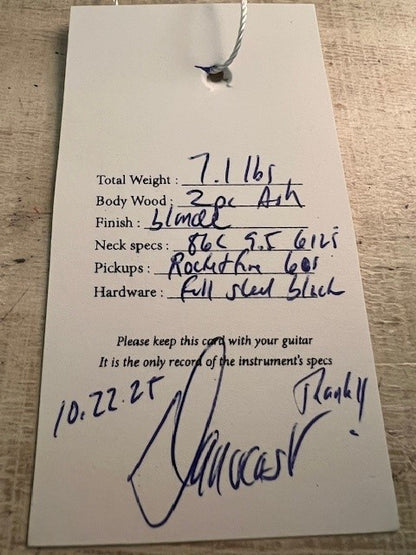 Total Weight : 7.1 lbs
Body Wood : 2 pc Ash
Finish : blonde
Neck specs : 86C 9.5 6125
Pickups : Rocketfire 60s
Hardware : full steel block
Please keep this card with your guitar
It is the only record of the instrument's specs
10.22.25 Thanks!
Danocaster